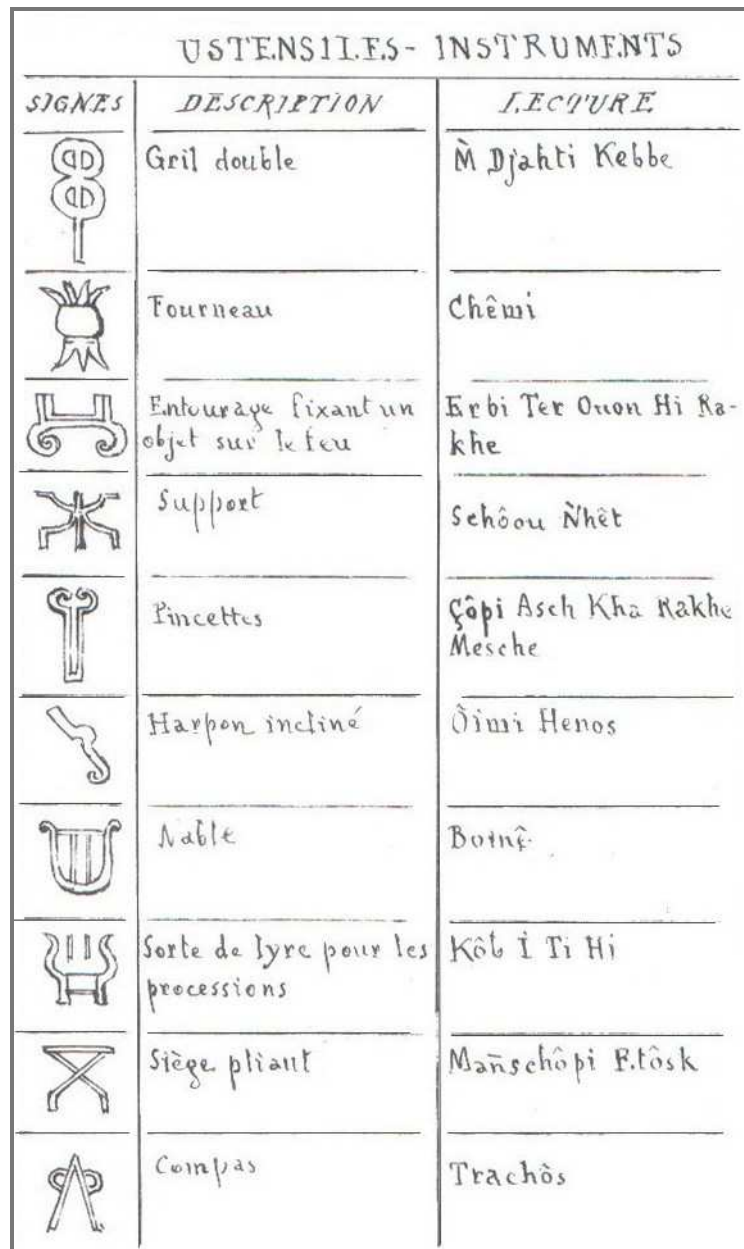 USTENSILES- INSTRUMENTS
SIGNES DESCRIPTION LECTURE
Gril double M̀ Djahti Kebbe
Fourneau Chêmi
Entourage fixant un Erbi Ter Ouon Hi Ra-
objet sur le feu khe
Support Schôou Ǹhêt
Pincettes Çôpi Asch Kha Rakhe
Mesche
Harpon incliné Òimi Henos
Nable Boinê
Sorte de lyre pour les Kôb Ì Ti Hi
processions
Siège pliant Mañschôpi Etôsk
Compas Trachôs